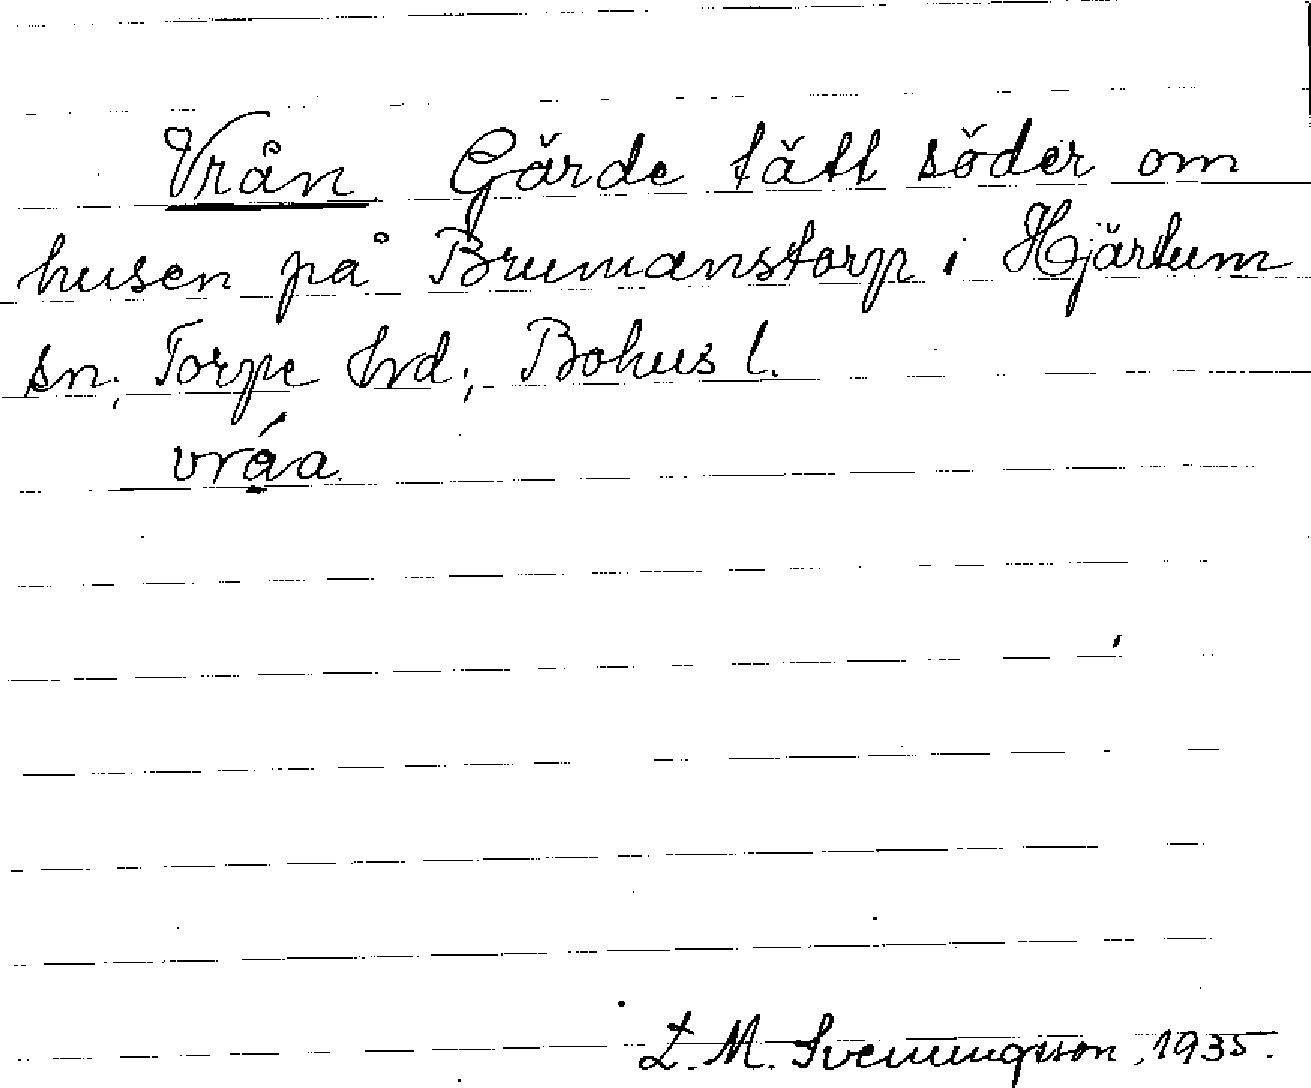 Vrån. Gärde tätt söder om
husen på Brumanstorp i Hjärtum
sn; Torpe hrd; Bohus l.
vráa.
L. M. Svenungsson, 1935.